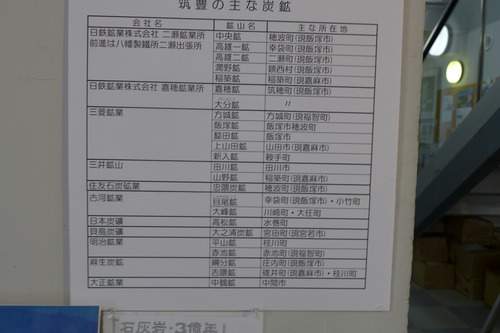 筑豊の主な炭鉱
会社名 鉱山名 主な所在地
日鉄鉱業株式会社 二瀬鉱業所 中央鉱 穂波町(現飯塚市)
前進は八幡製鐵所二瀬出張所 高雄一鉱 幸袋町(現飯塚市)
高雄二鉱 二瀬町(現飯塚市)
潤野鉱 鎮西村(現飯塚市)
稲築鉱 稲築町(現嘉麻市)
日鉄鉱業株式会社 嘉穂鉱業所 嘉穂鉱 筑穂町(現飯塚市)
大分鉱 〃
三菱鉱業 方城鉱 方城町(現福智町)
飯塚鉱 飯塚市穂波町
鯰田鉱 飯塚市
上山田鉱 山田市(現嘉麻市)
新入鉱 鞍手町
三井鉱山 田川鉱 田川市
山野鉱 稲築町(現嘉麻市)
住友石炭鉱業 忠隈炭鉱 穂波町(現飯塚市)
古河鉱業 目尾鉱 幸袋町(現飯塚市)・小竹町
大峰鉱 川崎町・大任町
日本炭礦 高松鉱 水巻町
貝島炭礦 大之浦炭鉱 宮田町(現宮若市)
明治鉱業 平山鉱 桂川町
赤池鉱 赤池町(現福智町)
麻生炭鉱 綱分鉱 庄内町(現飯塚市)
吉隈鉱 碓井町(現嘉麻市)・桂川町
大正鉱業 中鶴鉱 中間市
石灰岩・3億年!